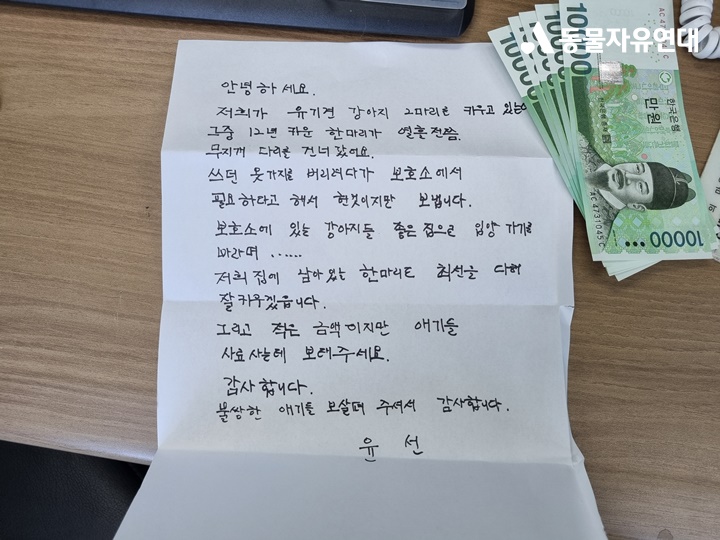 동물자유연대
안녕하세요.
저희가 유기견 강아지 2마리를 키우고 있는데
그중 12년 키운 한마리가 열흘전쯤.
무지개 다리를 건너 갔어요.
쓰던 옷가지를 버리려다가 보호소에서
필요하다고 해서 헌것이지만 보냅니다.
보호소에 있는 강아지들 좋은 집으로 입양 가기를
바라며 ......
저희 집에 남아 있는 한마리도 최선을 다해
잘 키우겠읍니다.
그리고 적은 금액이지만 애기들
사료 사는데 보태주세요.
감사합니다.
불쌍한 애기들 보살펴 주셔서 감사합니다.
윤 선
10000
10000
10000
한국은행
만원
AC 4731045 C
10000